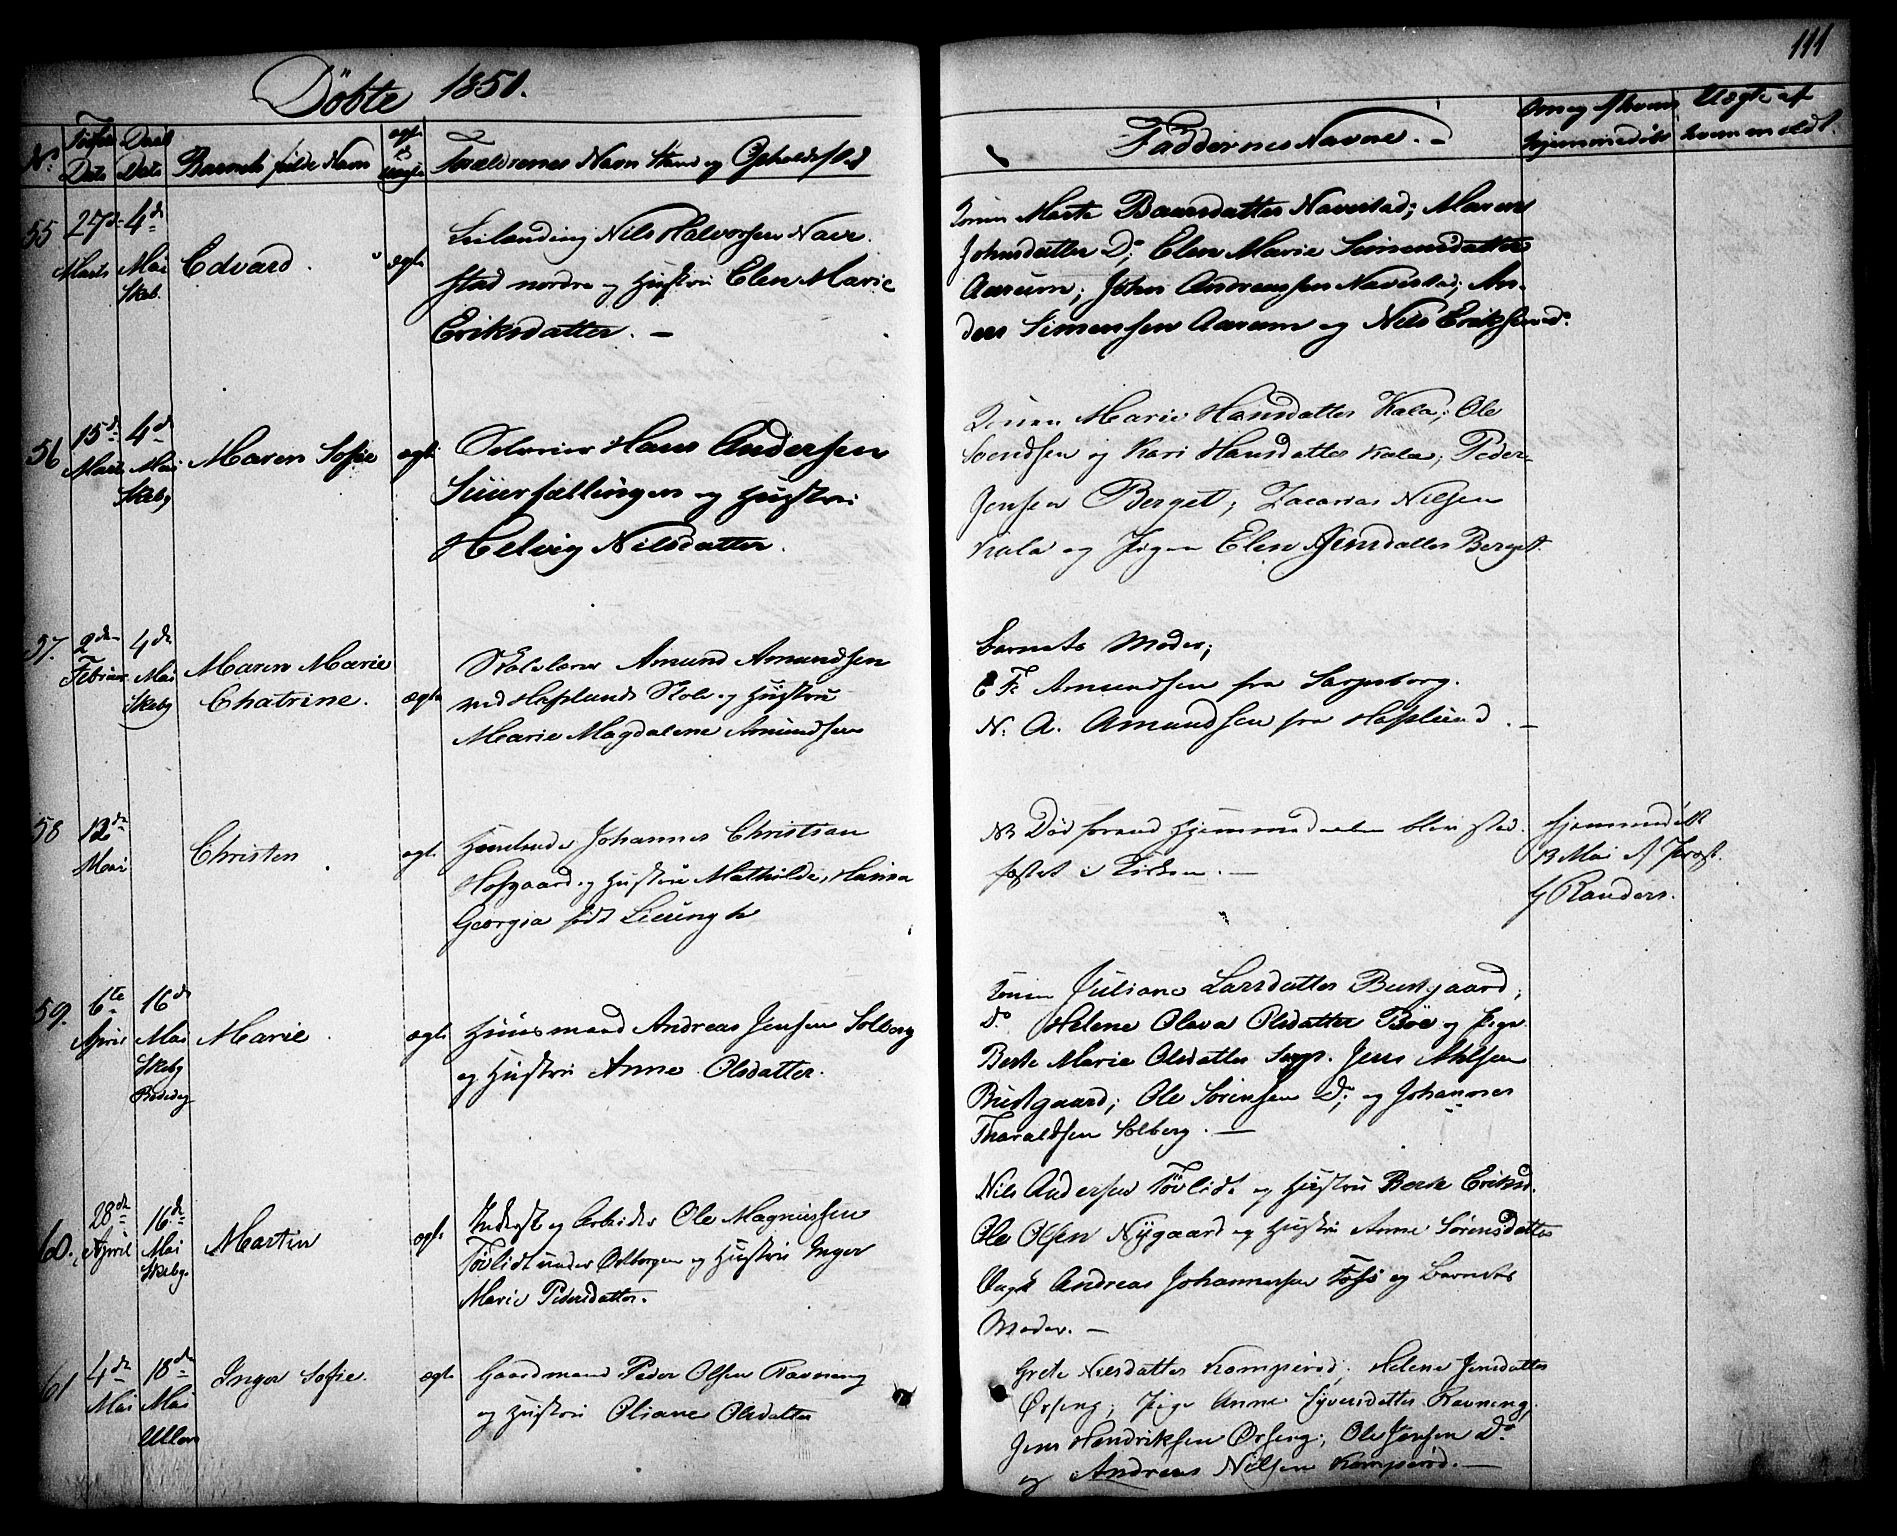 111
Döbte 1851.
No.
Födsels Dato
Daabs Dato
Barnets fulde Navn
ægte el. uægte
Forældrenes Navn Stand og Opholdssted
Faddernes Navne.
Om og af hvem hjemmedöbt
Uægte af hvem meldt.
55
27de Marts
4de Mai Skeb.
Edvard.
ægte
Leilænding Nils Halvorsen Nave-
stad nordre og Hustru Elen Marie
Eriksdatter. —
Konen Marte Baarsdatter Navestad; Maren
Johnsdatter Do; Elen Marie Simensdatter
Aarum; John Andreassen Navestad; An-
ders Simensen Aarum og Nils Eriksen do.
56
15de Marts
4de Mai Skeby
Maren Sofie
ægte
Selveier Hans Andersen
og Hustru
Helvig Nilsdatter.
Konen Marie Hansdatter Kala; Ole
Svendsen og Kari Hansdatter Kala; Peder
Jensen Berget; Zacarias Nilsen
Kala og Pigen Elen Jensdatter Berget.
57.
2den Februar
4de Mai Skeby
Maren Marie
Chatrine.
ægte
Skolelærer Amund Amundsen
ved Hafslunds Skole og Hustru
Marie Magdalene Amundsen
Barnets Moder;
E F. Amundsen fra Sarpsborg.
N. A. Amundsen fra Hafslund. —
58
12de Mai
Christen
ægte
Johannes Christian
Hofgaard og Hustru Mathilde, Hansa
Georgia född
NB Död forend Hjemmedaaben blev stad-
fæstet i Kirken. —
Hjemmedöbt
13 Mai af Provst
Randers.
59.
6te April
16de Mai Skeby
Marie.
ægte
Huusmand Andreas Jensen Solberg
og Hustru Anne Olsdatter.
Konen Juliane Larsdatter Bustgaard;
Do Helene Olava Olsdatter Böe og Pige
Berte Marie Olsdatter Jens
Bustgaard; Ole Sörensen Do; og Johannes
Tharaldsen Solberg. —
60.
28de April
16de Mai Skeby
Martin
ægte
Inderst og Arbeider Ole Magnussen
under og Hustru Inger
Marie Pedersdatter.
Nils Andersen og Hustru Berte Eriksd.
Ole Olsen Nygaard og Hustru Anne Sörensdatter
Andreas Johannessen Foss og Barnets
Moder. —
61
4de Mai
18de Mai Ullerö
Inger Sofie.
ægte
Gaardmand Peder Olsen Ravneng
og Hustru Oliane Olsdatter
Grete Nilsdatter Kamperöd; Helene Jensdatter
Örseng; Pige Anne Syversdatter Ravneng,
Jens Hendriksen Örseng; Ole Jensen Do
og Andreas Nilsen Kamperöd. —